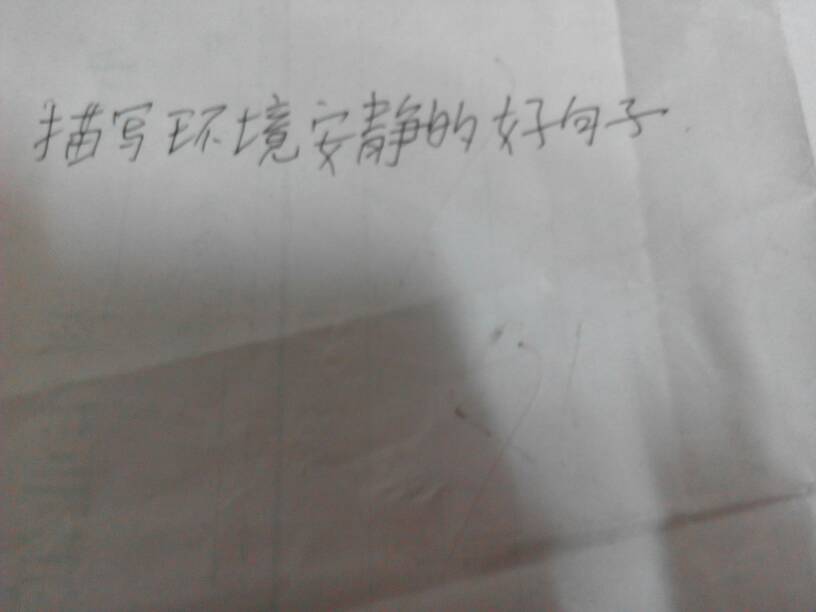 描写环境安静的好句子